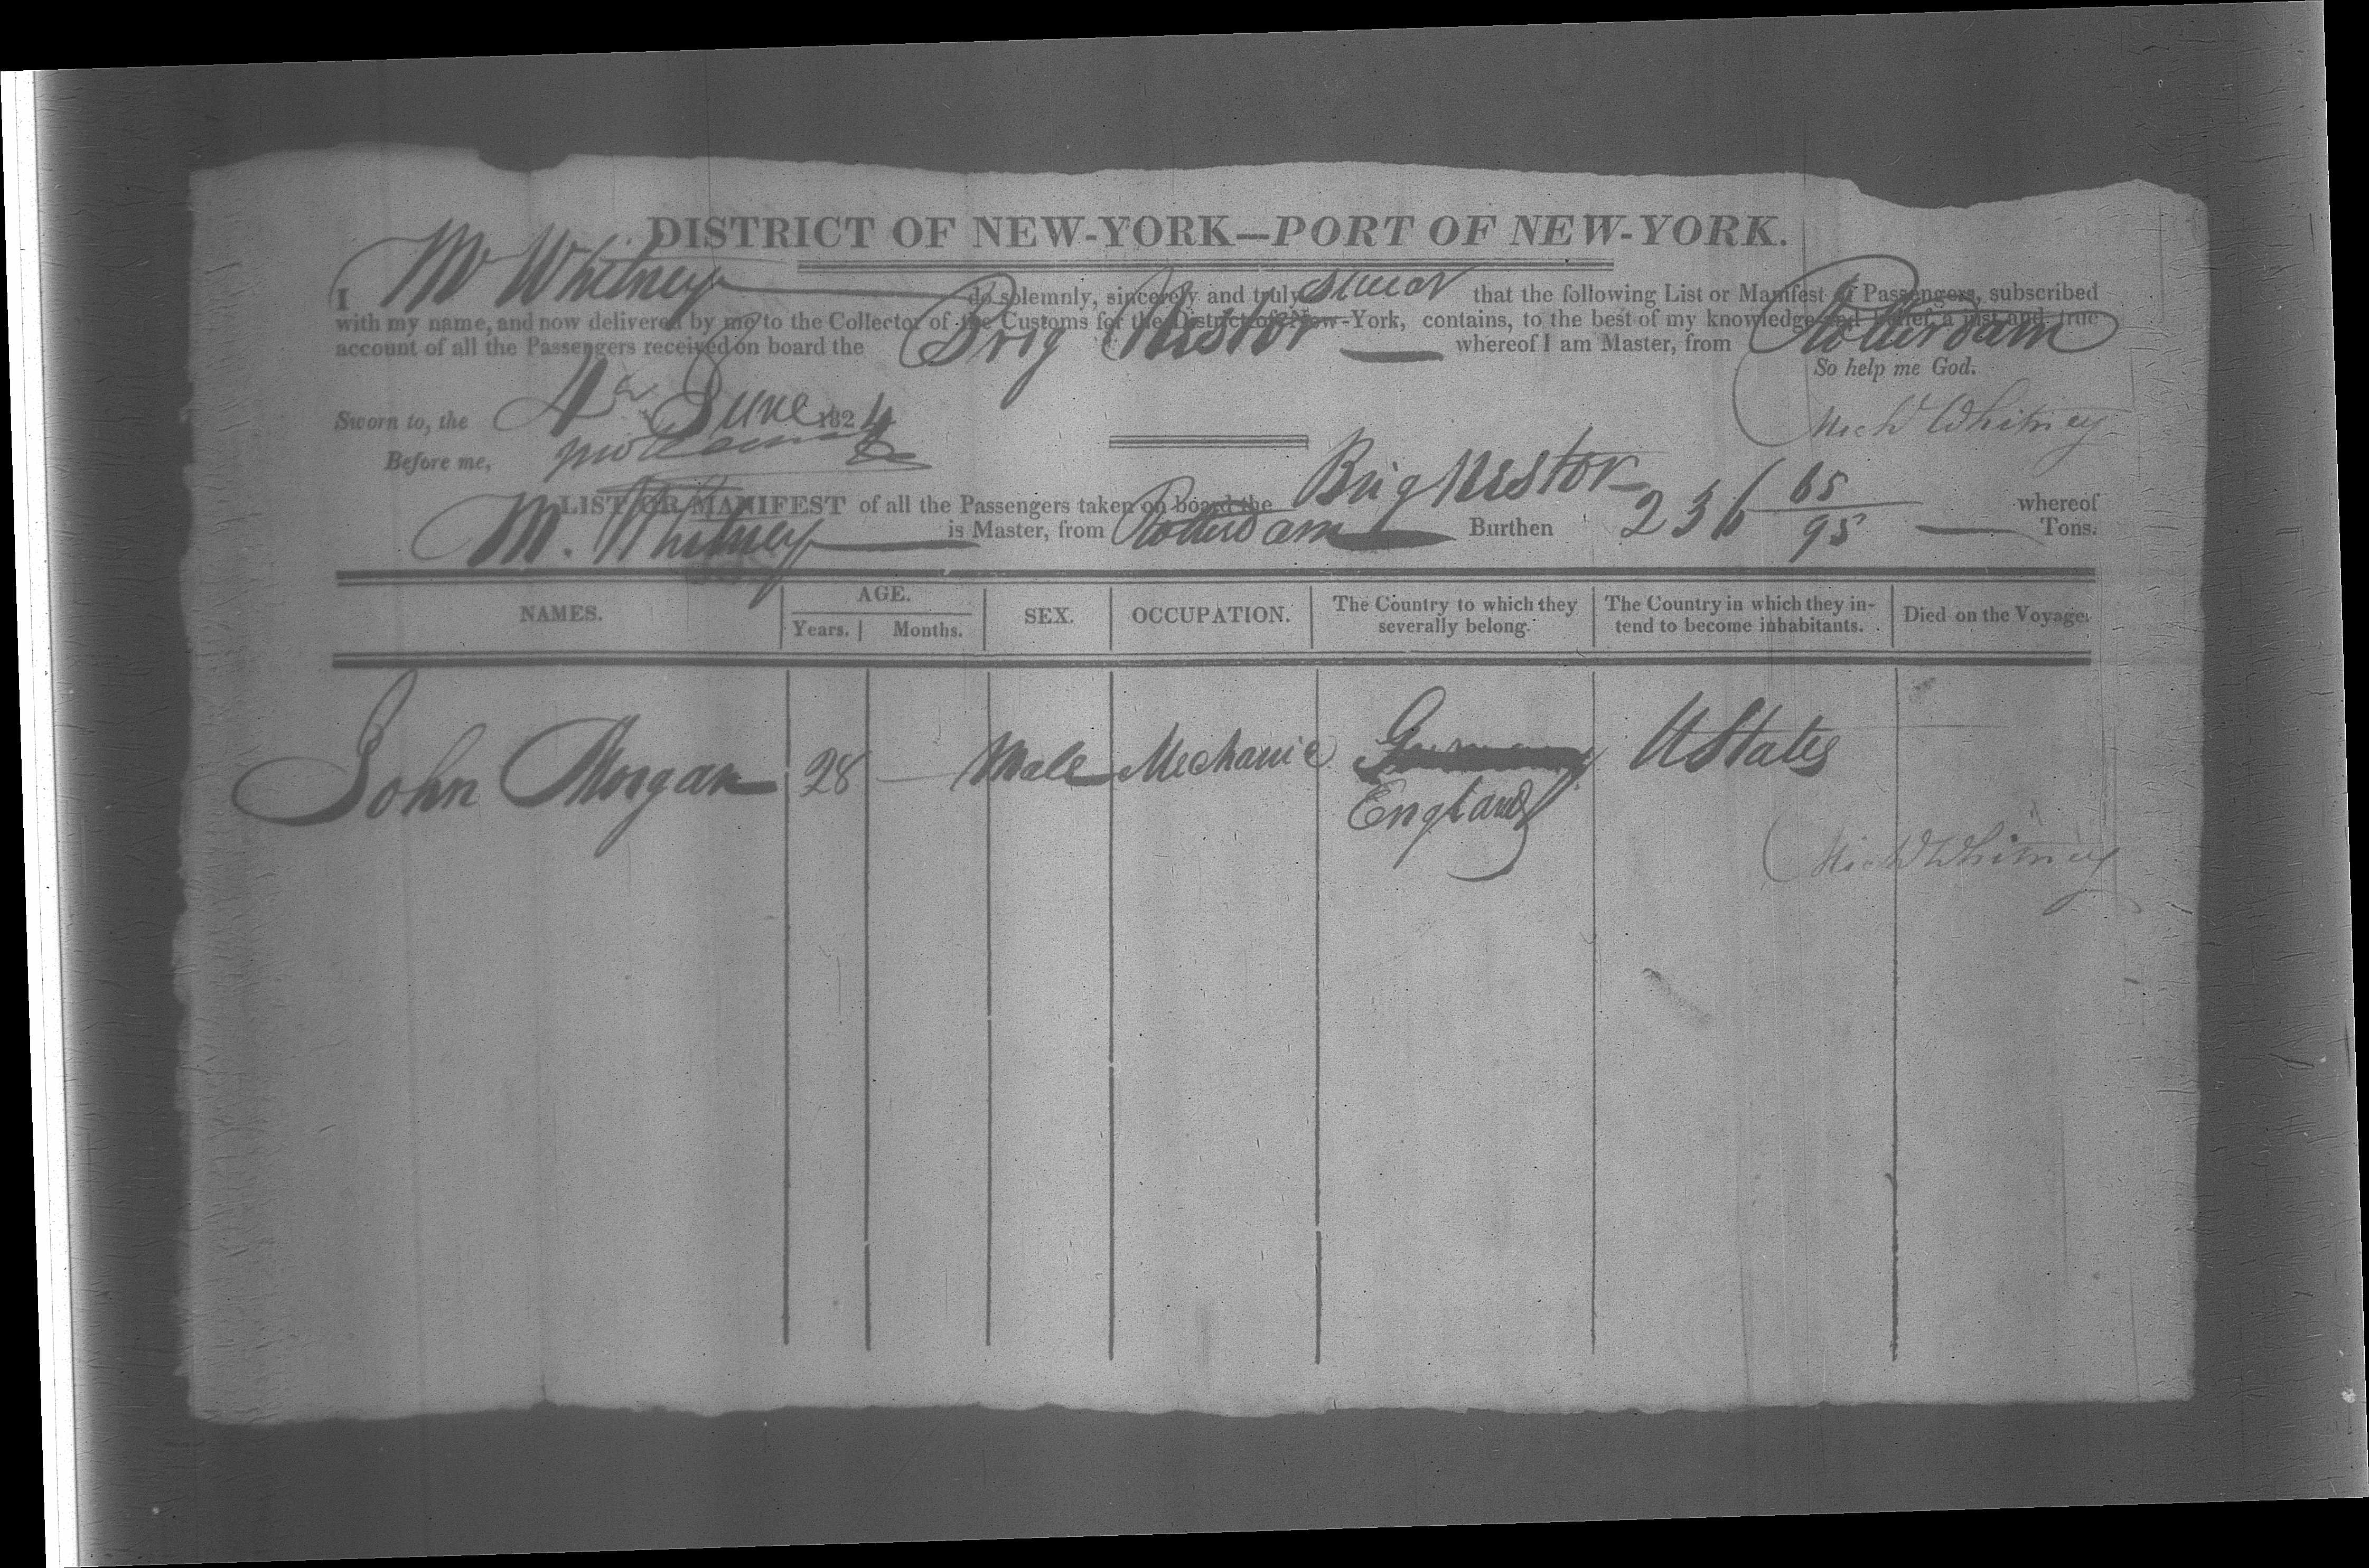 DISTRICT OF NEW-YORK—PORT OF NEW-YORK.
I M Whitney do solemnly, sincerely and truly swear that the following List or Manifest of Passengers, subscribed
with my name, and now delivered by me to the Collector of the Customs for the District of New-York, contains, to the best of my knowledge and belief, a just and true
account of all the Passengers received on board the Brig Nestor whereof I am Master, from Rotterdam
So help me God.
Sworn to, the 4th June 1824
Michl Whitney
Before me,
LIST OR MANIFEST of all the Passengers taken on board the Brig Nestor whereof
M. Whitney is Master, from Rotterdam Burthen 236 65/95 Tons.
NAMES. AGE. Years. Months. SEX. OCCUPATION. The Country to which they severally belong. The Country in which they intend to become inhabitants. Died on the Voyage.
John Morgan 28 — Male Mechanic Germany UStates
England
Michl Whitney